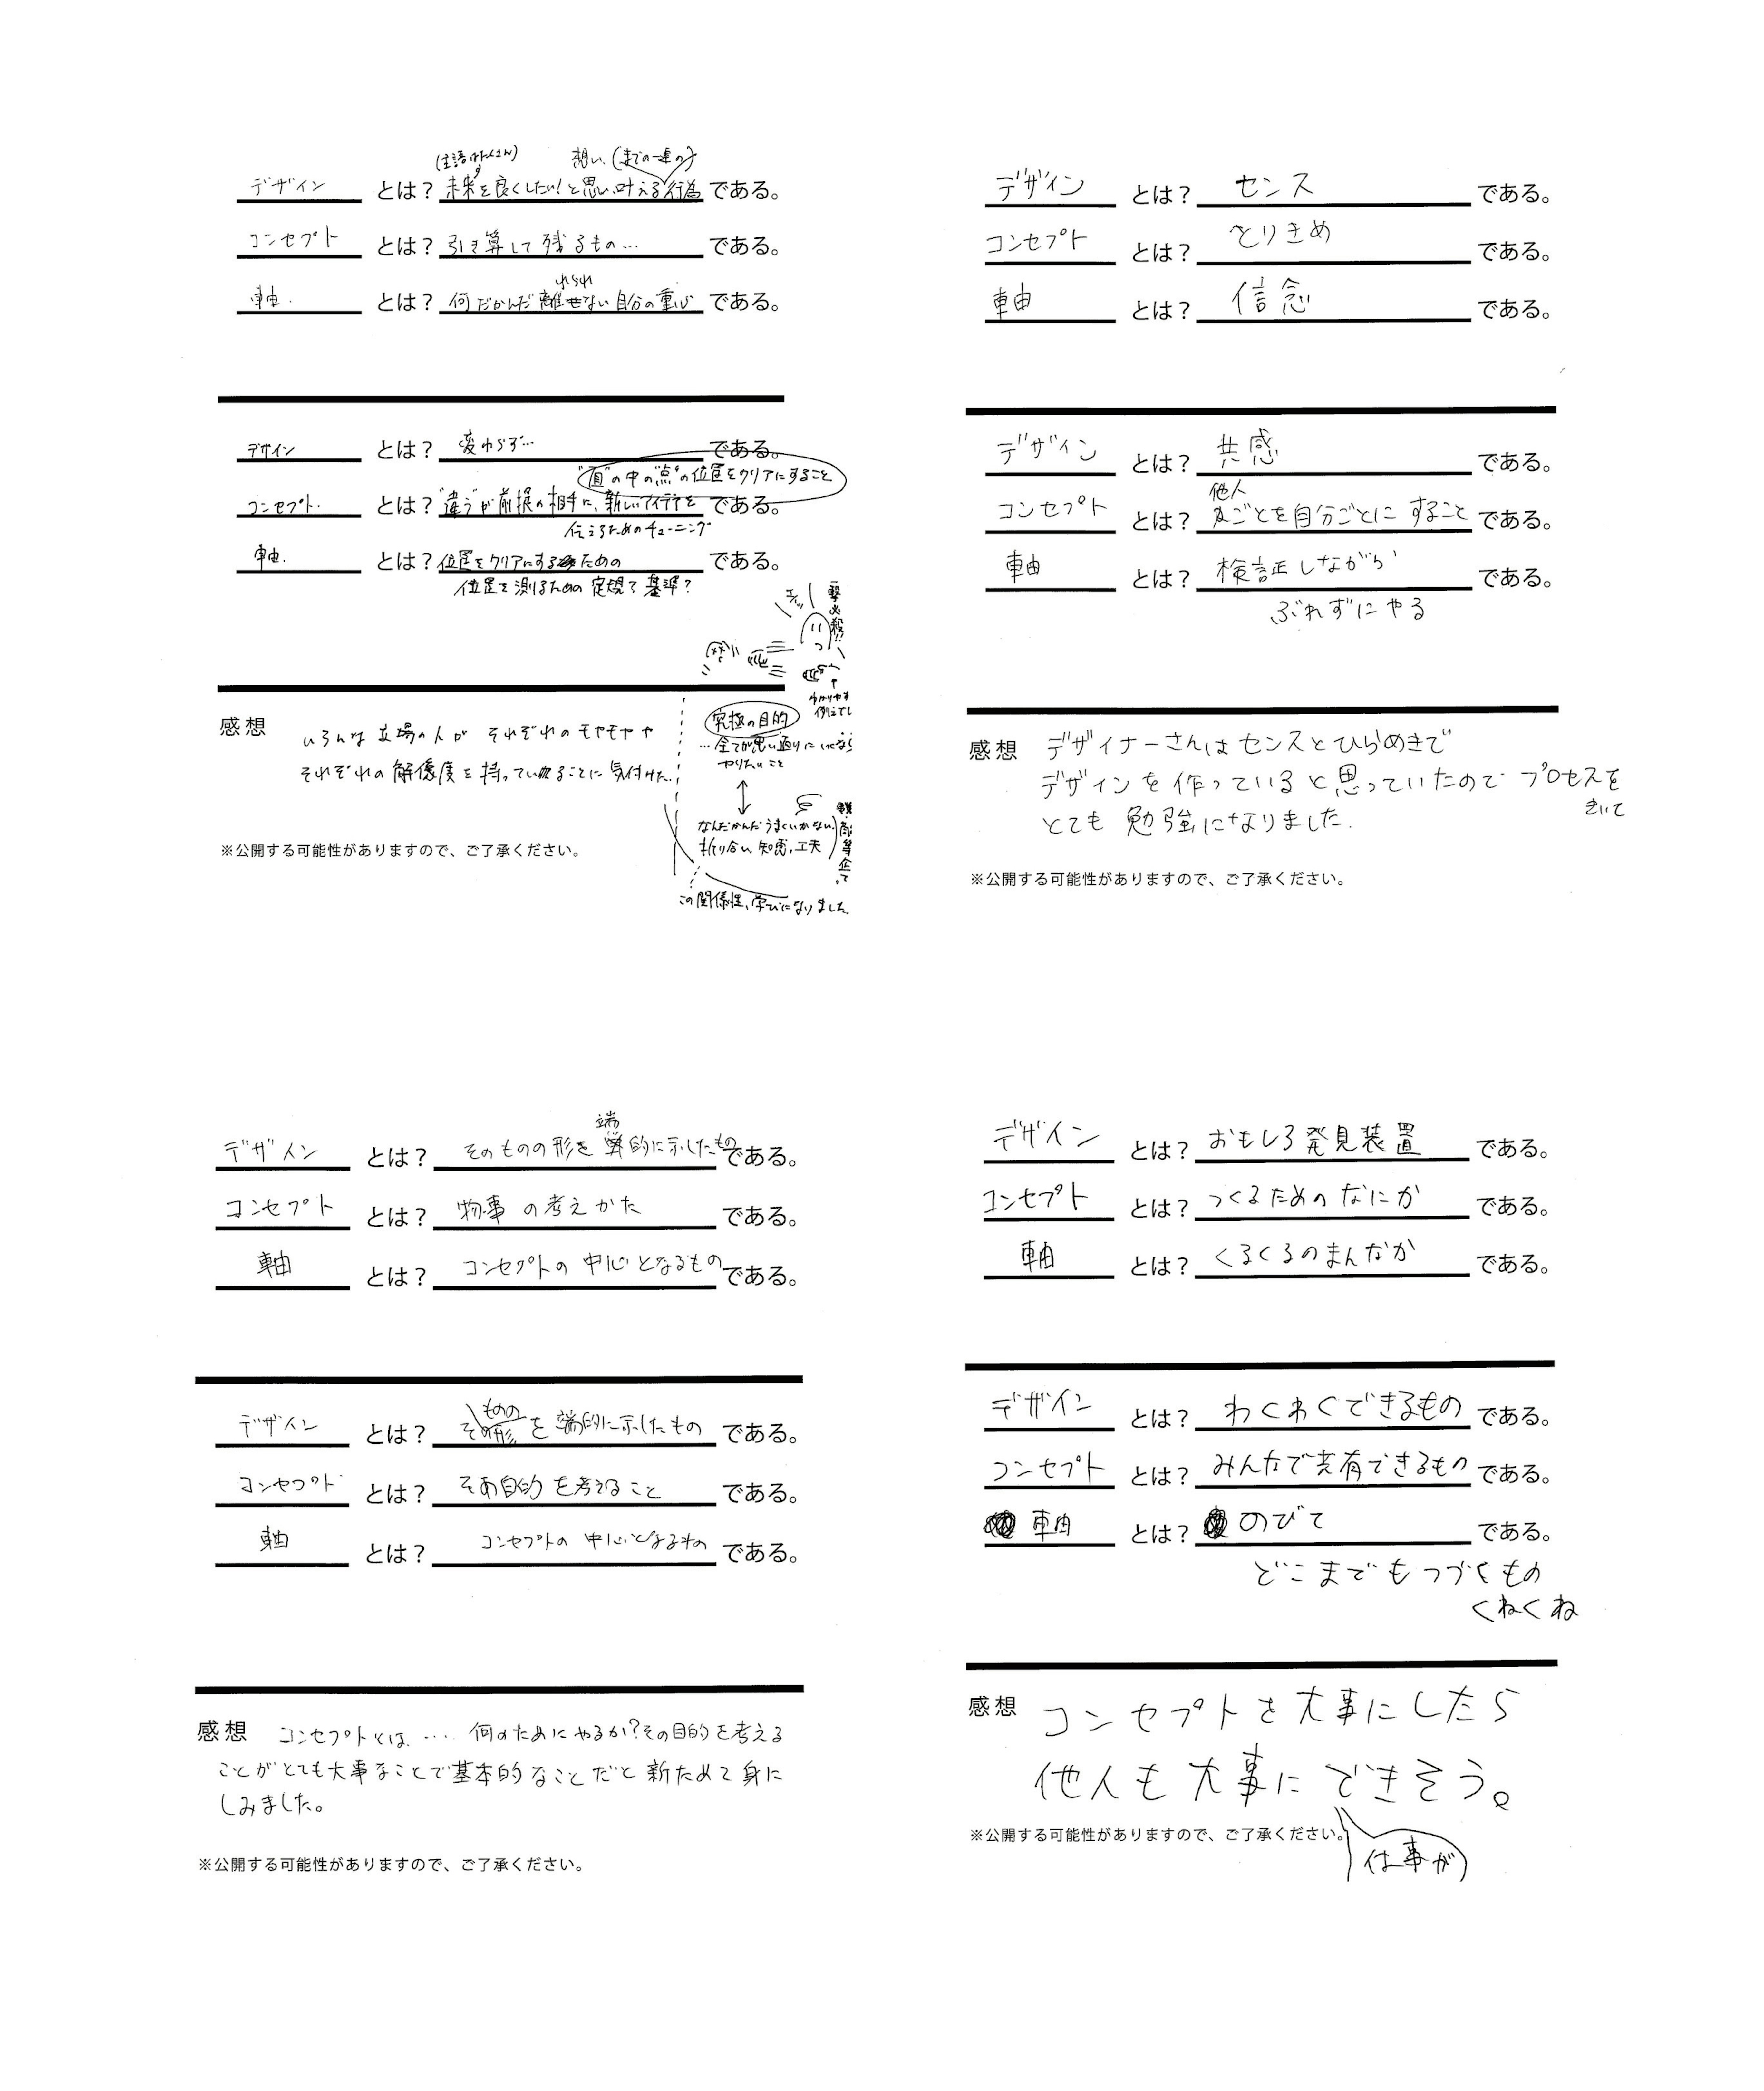 (主語はたくさん) 想い、(までの一連の)
デザイン とは？ 未来を良くしたい！と思い、叶える行為 である。
コンセプト とは？ 引き算して残るもの… である。
れられ
軸 とは？ 何だかんだ離せない自分の重心 である。
デザイン とは？ 変わらず… である。
"面"の中の"点"の位置をクリアにすること
コンセプト とは？ "違う"が前提の相手に、新しいアイデアを である。
伝えるためのチューニング
軸 とは？ 位置をクリアにするための である。
位置を測るための定規？基準？
感想 いろんな立場の人が それぞれのモヤモヤや
それぞれの解像度を持っていることに気付けた。
究極の目的
…全てが思い通りにいくなら
やりたいこと
なんだかんだうまくいかない
折り合い、知恵、工夫
この関係性、学びになりました。
※公開する可能性がありますので、ご了承ください。
デザイン とは？ センス である。
コンセプト とは？ とりきめ である。
軸 とは？ 信念 である。
デザイン とは？ 共感 である。
他人
コンセプト とは？ ごとを自分ごとにすること である。
軸 とは？ 検証しながら である。
ぶれずにやる
感想 デザイナーさんはセンスとひらめきで
デザインを作っていると思っていたのでプロセスを
きいて
とても勉強になりました.
※公開する可能性がありますので、ご了承ください。
端
デザイン とは？ そのものの形を的に示したもの である。
コンセプト とは？ 物事の考えかた である。
軸 とは？ コンセプトの中心となるもの である。
ものの
デザイン とは？ その形を端的に示したもの である。
コンセプト とは？ その目的を考えること である。
軸 とは？ コンセプトの中心となるもの である。
感想 コンセプトとは….. 何のためにやるか？その目的を考える
ことがとても大事なことで基本的なことだと新ためて身に
しみました。
※公開する可能性がありますので、ご了承ください。
デザイン とは？ おもしろ発見装置 である。
コンセプト とは？ つくるためのなにか である。
軸 とは？ くるくるのまんなか である。
デザイン とは？ わくわくできるもの である。
コンセプト とは？ みんなで共有できるもの である。
軸 とは？ のびて である。
どこまでもつづくもの
くねくね
感想 コンセプトを大事にしたら
他人も大事にできそう。
仕事が
※公開する可能性がありますので、ご了承ください。